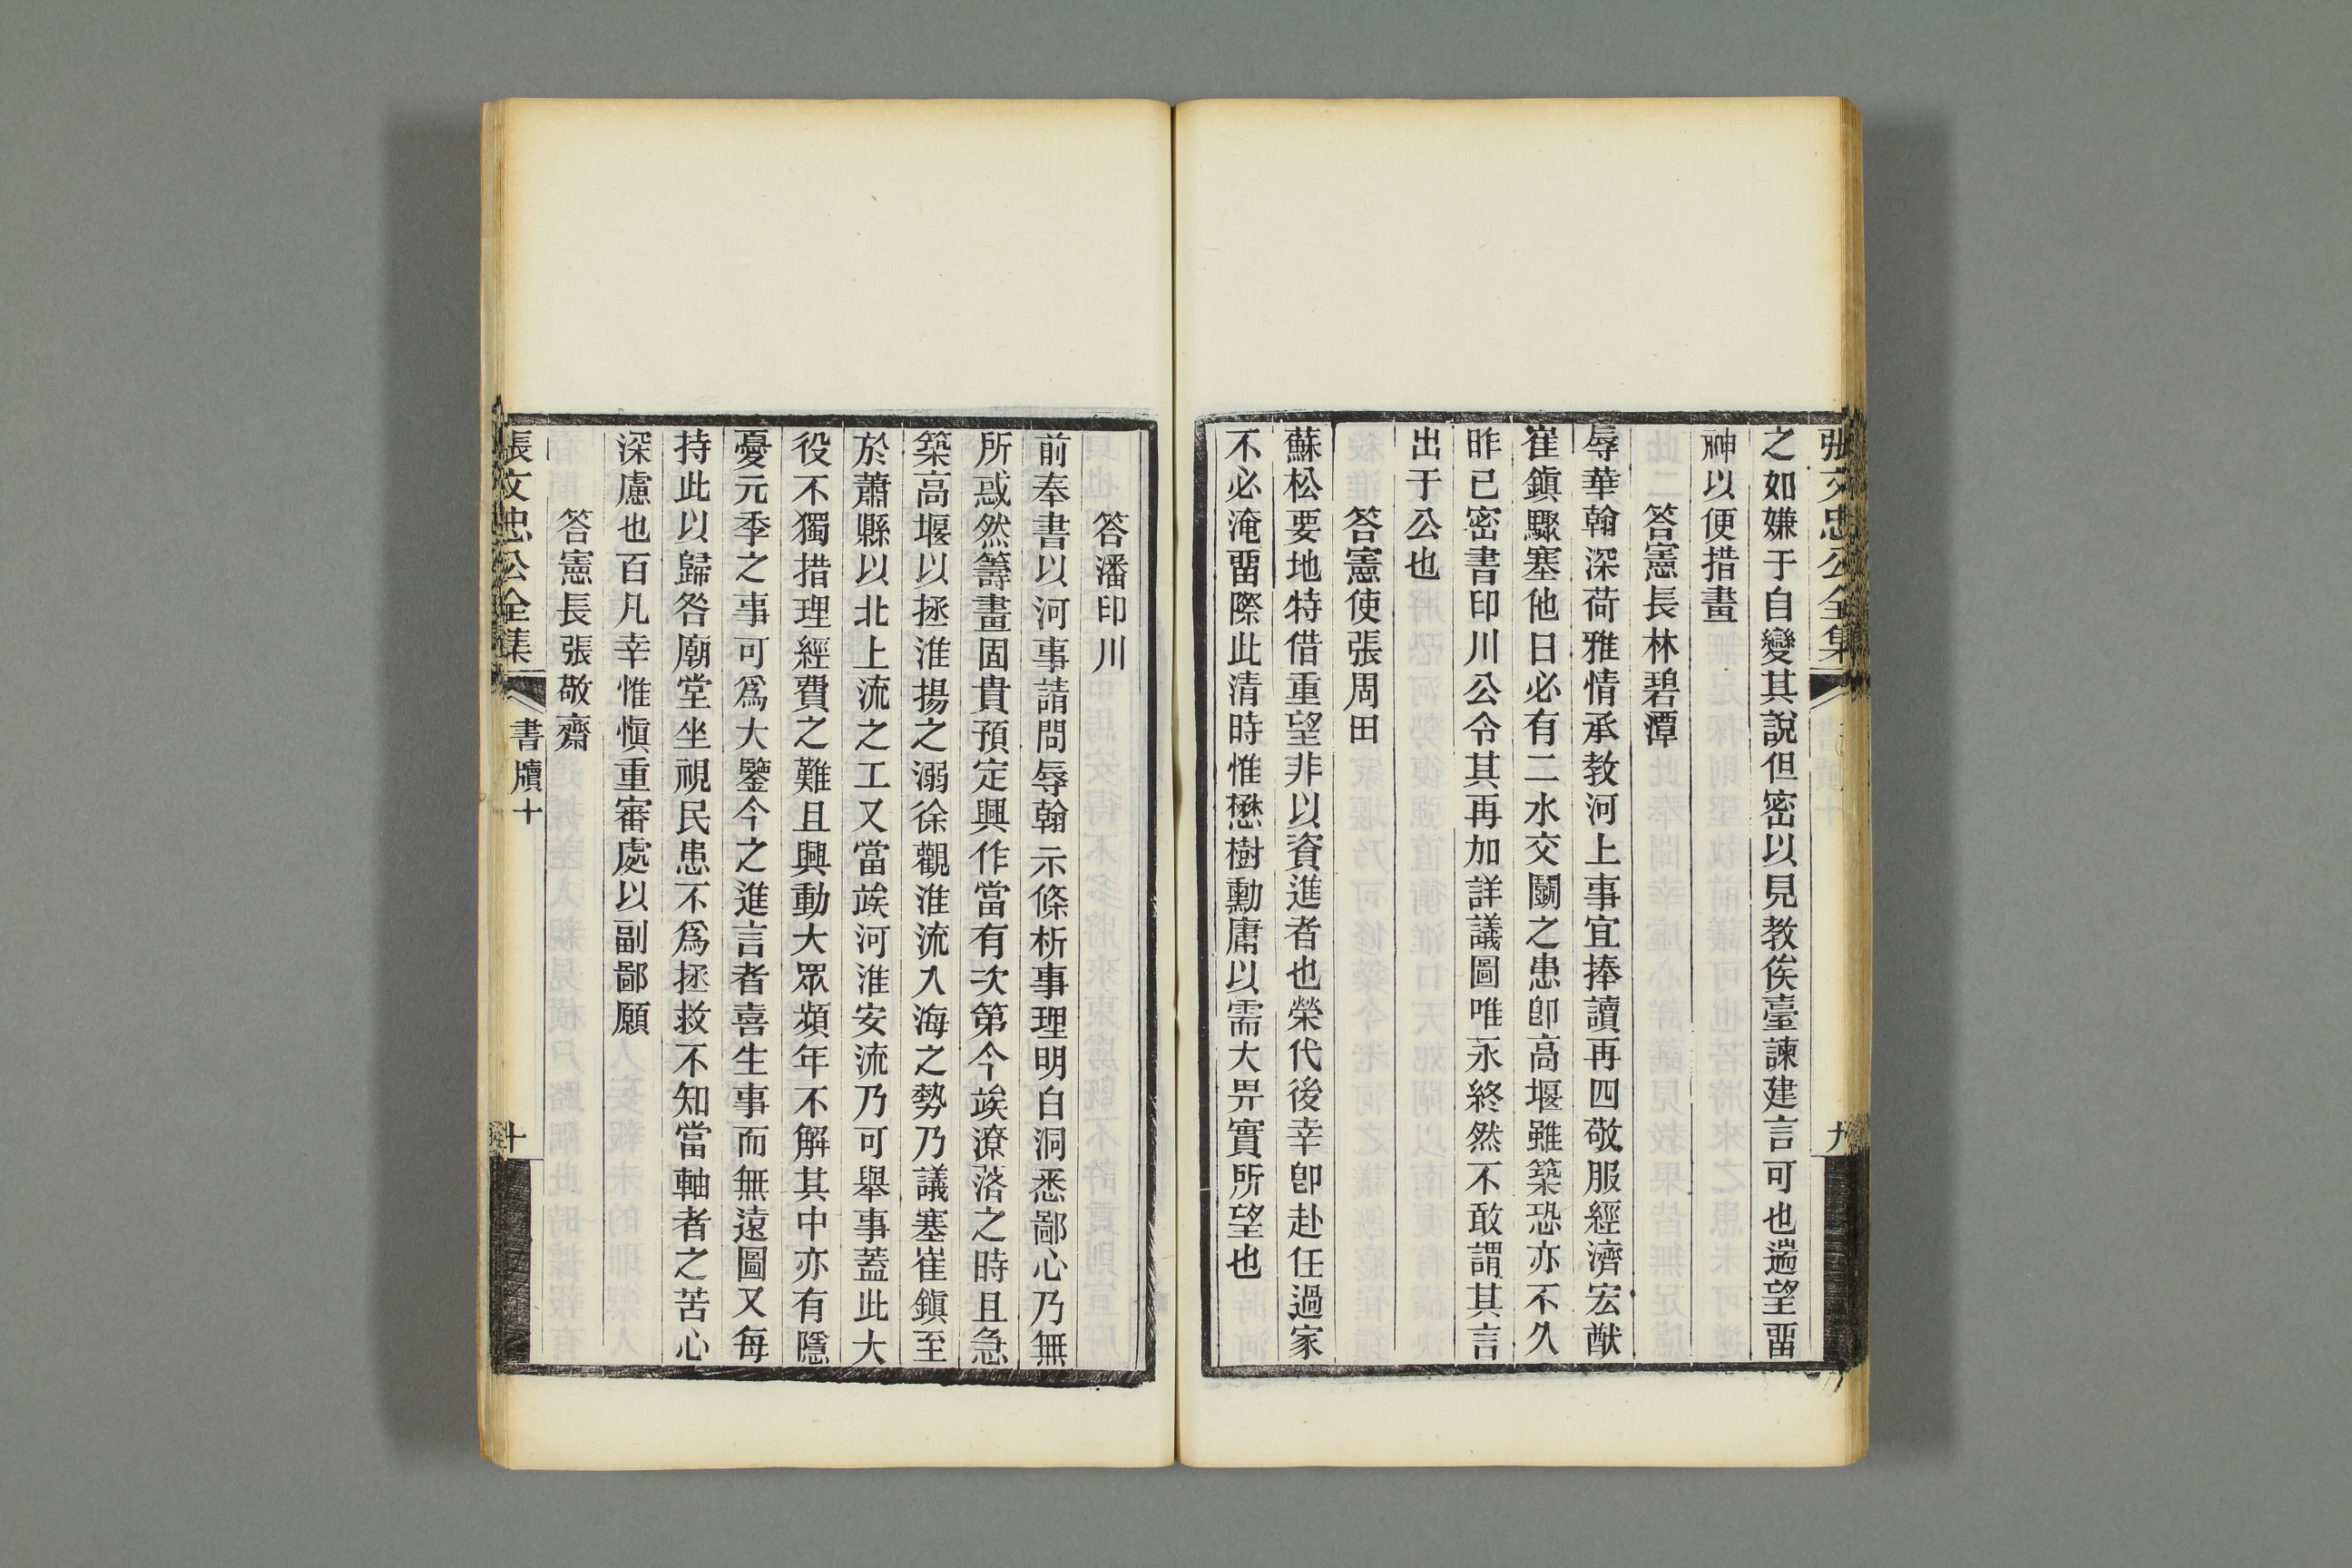 張文忠公全集
九
之如嫌于自變其說但密以見教俟臺諫建言可也遄望畱
神以便措畫
答憲長林碧潭
辱華翰深荷雅情承教河上事宜捧讀再四敬服經濟宏猷
崔鎮驟塞他日必有二水交鬭之患卽高堰雖築恐亦不久
昨已密書印川公令其再加詳議圖唯永終然不敢謂其言
出于公也
答憲使張周田
蘇松要地特借重望非以資進者也榮代後幸卽赴任過家
不必淹畱際此清時惟懋樹勳庸以需大畀實所望也
答潘印川
前奉書以河事請問辱翰示條析事理明白洞悉鄙心乃無
所惑然籌畫固貴預定興作當有次第今竢潦落之時且急
築高堰以拯淮揚之溺徐觀淮流入海之勢乃議塞崔鎮至
於蕭縣以北上流之工又當竢河淮安流乃可舉事蓋此大
役不獨措理經費之難且興動大眾頻年不解其中亦有隱
憂元季之事可爲大鑒今之進言者喜生事而無遠圖又每
持此以歸咎廟堂坐視民患不爲拯救不知當軸者之苦心
深慮也百凡幸惟愼重審處以副鄙願
答憲長張敬齋
張文忠公全集
書牘十
十